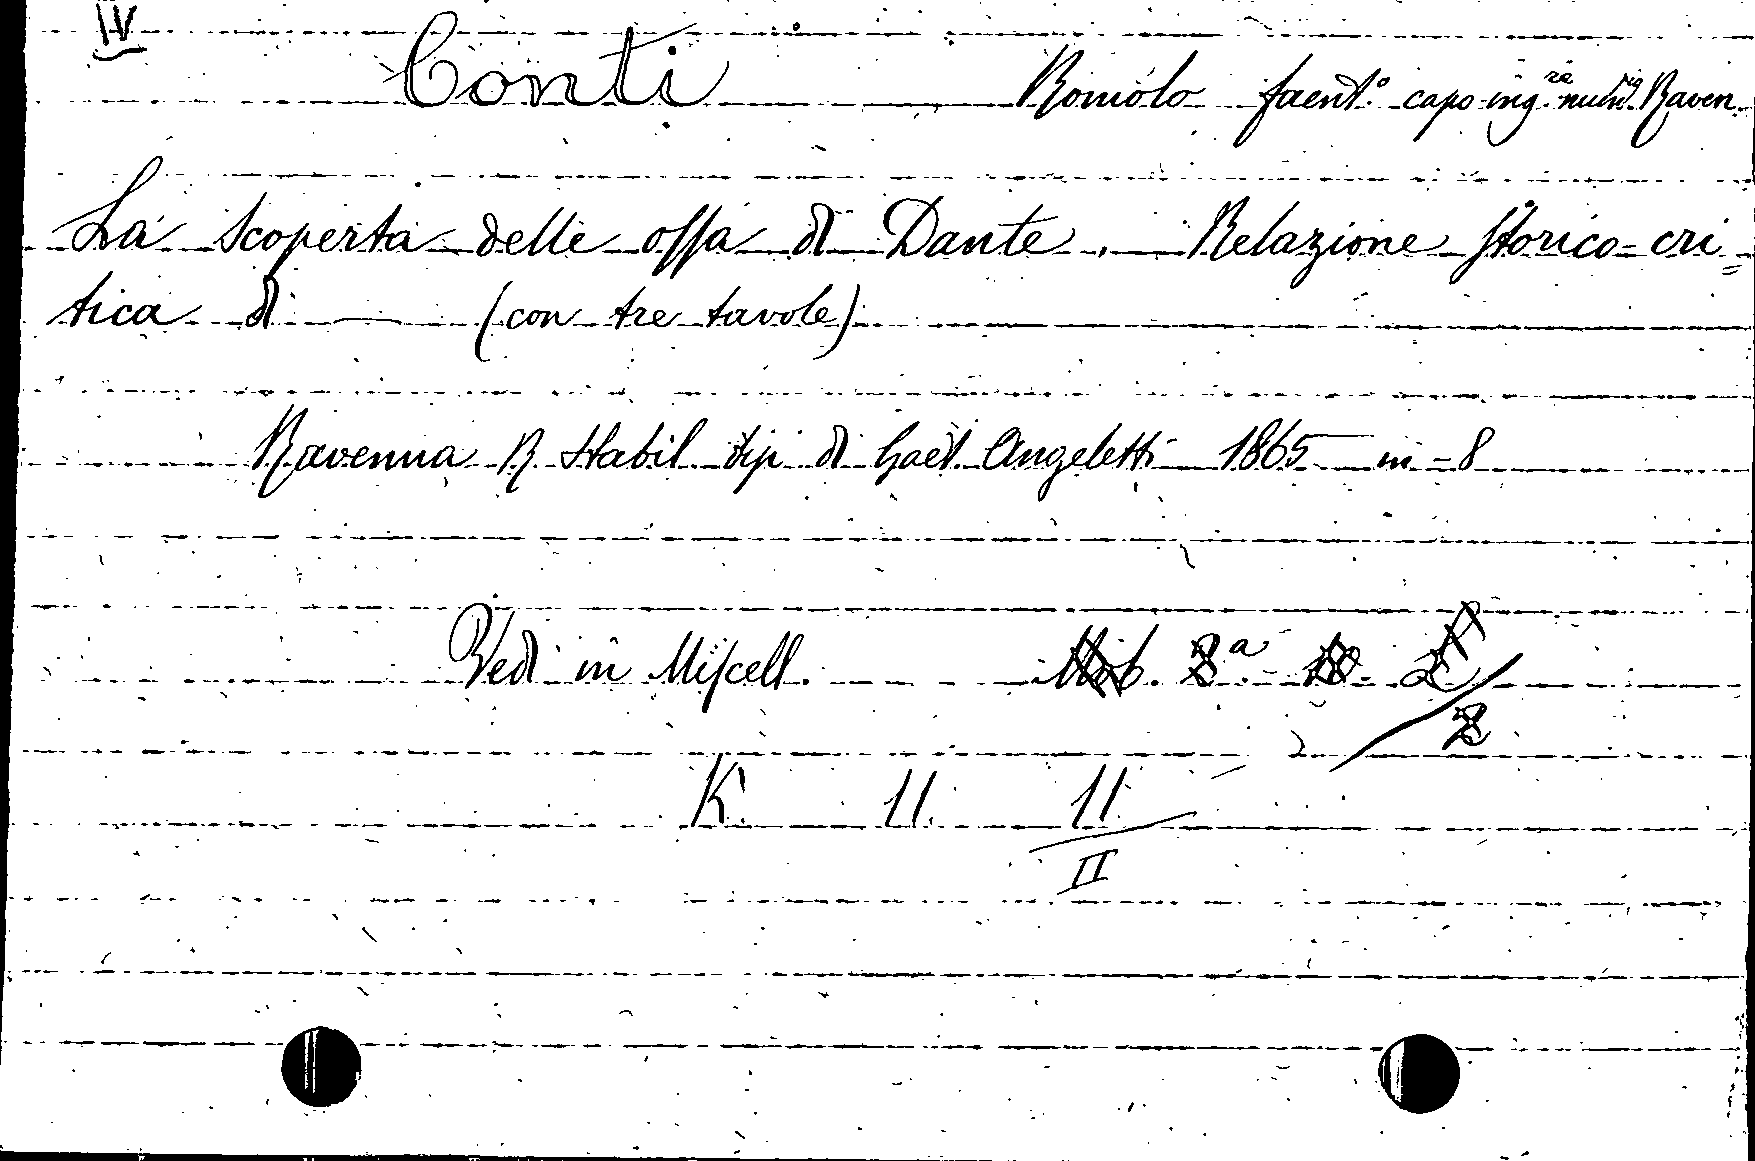 IV
Conti Romolo faent.o capo ing.re munic. Raven.
La scoperta delle ossa di Dante. Relazione storico-cri=
tica di — (con tre tavole)
Ravenna R. Stabil. tip. di Gaet. Angeletti 1865 in-8
Vedi in Miscell.
K. 11. 11
II